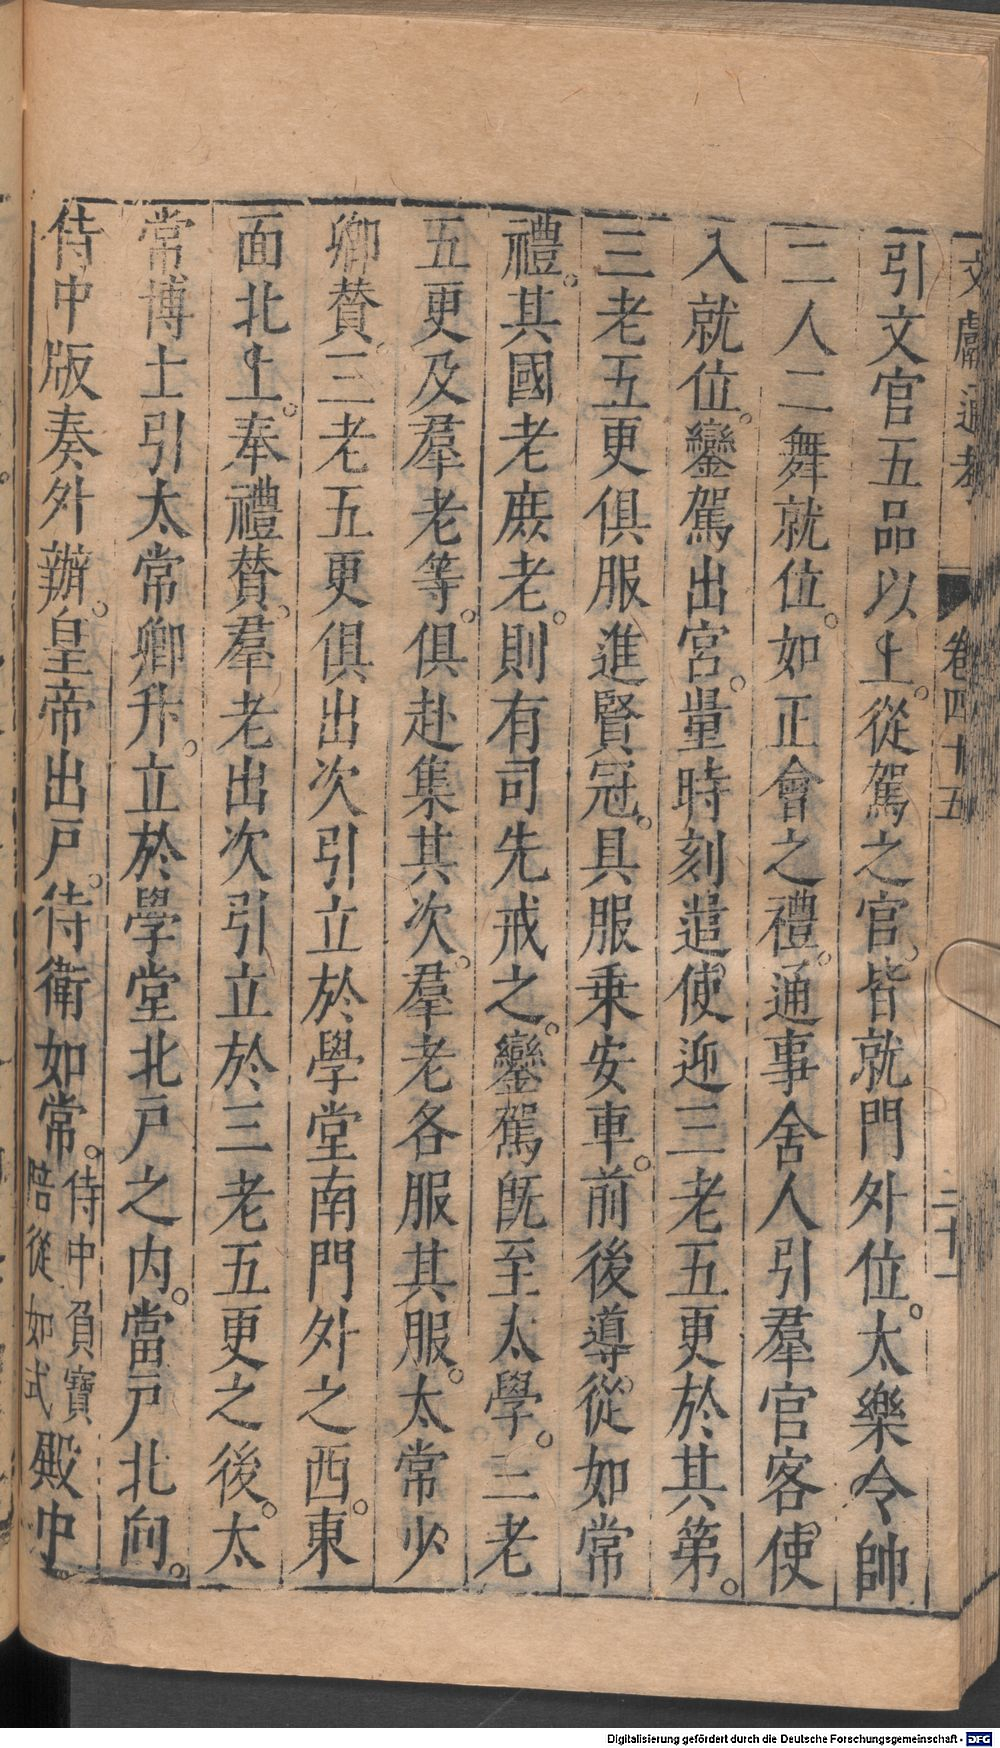 文獻通考 卷四十五 二十一
引文官五品以上。從駕之官。皆就門外位。太樂令帥
二人二舞就位。如正會之禮。通事舍人引羣官客使
入就位。鑾駕出宮。量時刻遣使迎三老五更於其第。
三老五更俱服進賢冠。具服乗安車。前後導從如常
禮。其國老庻老。則有司先戒之。鑾駕旣至太學。三老
五更及羣老等。俱赴集其次。羣老各服其服。太常少
卿賛。三老五更俱出次引立於學堂南門外之西。東
面北上。奉禮賛。羣老出次引立於三老五更之後。太
常博士引太常卿升。立於學堂北戸之内。當戸北向。
侍中版奏外辦。皇帝出戸。侍衛如常。侍中負寶陪從如式殿中。
Digitalisierung gefördert durch die Deutsche Forschungsgemeinschaft - DFG